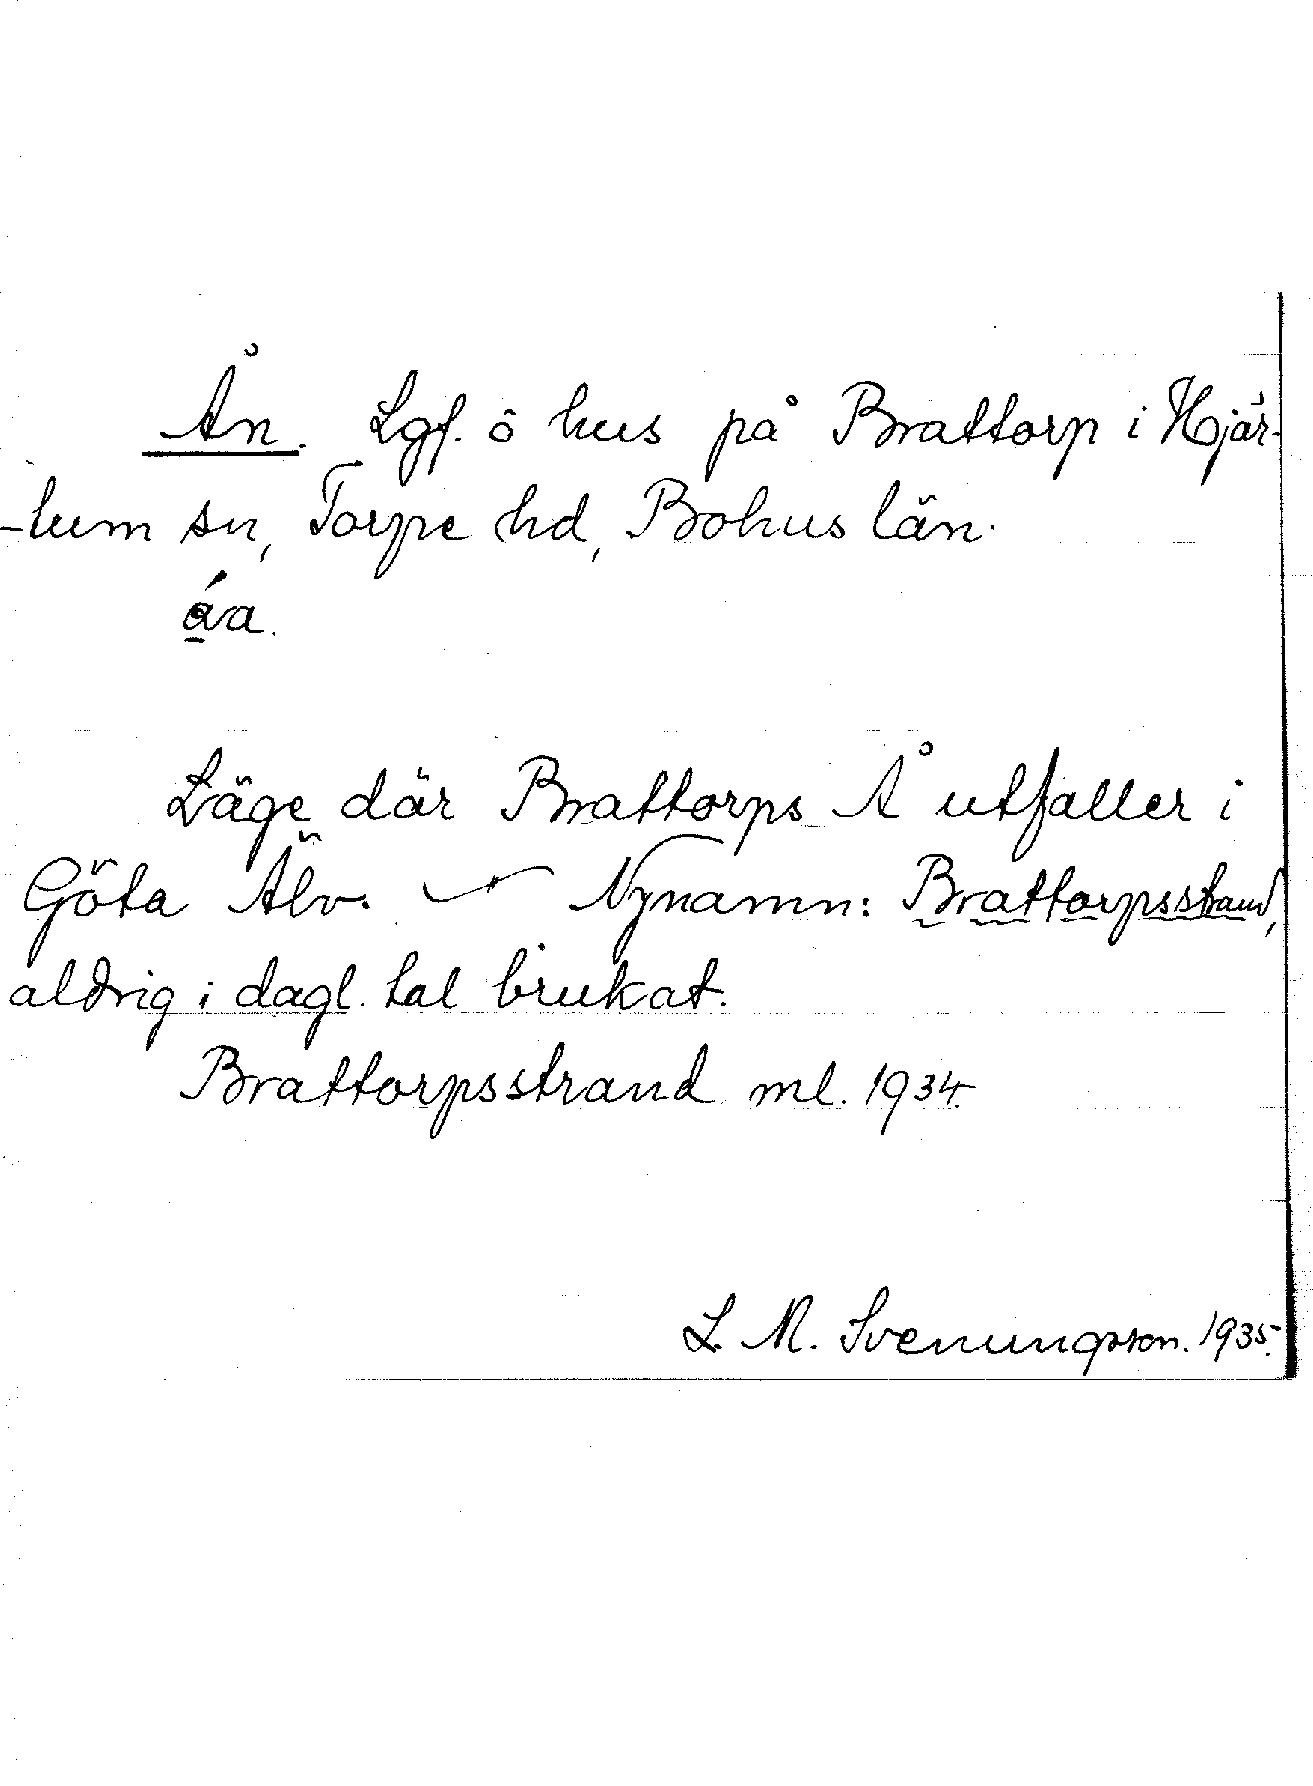 Ån. Lgf. o hus på Brattorp i Hjär-
-tum sn, Torpe hd, Bohus län.
åa.
Läge där Brattorps Å utfaller i
Göta Älv. Nynamn: Brattorpsstrand,
aldrig i dagl. tal brukat.
Brattorpsstrand ml. 1934.
L. M. Svenungsson. 1935.